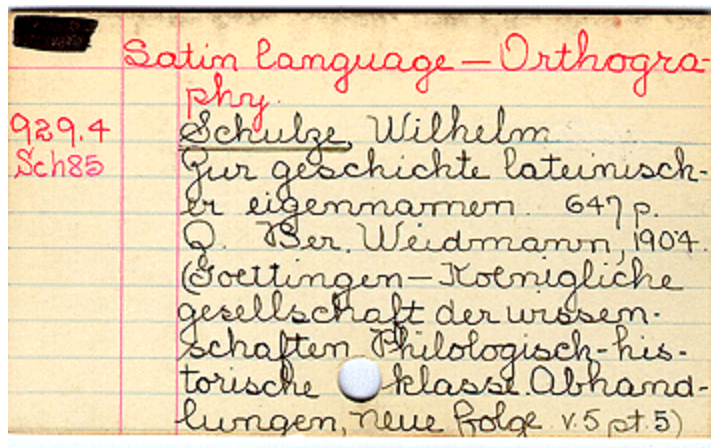 Latin language — Orthogra-
phy.
929.4 Schulze, Wilhelm
Sch85 Zur geschichte lateinisch-
er eigennamen. 647 p.
Q. Ber. Weidmann, 1904.
(Goettingen — Koenigliche
gesellschaft der wissen-
schaften Philologisch-his-
torische klasse. Abhand-
lungen, neue folge v.5 pt.5)